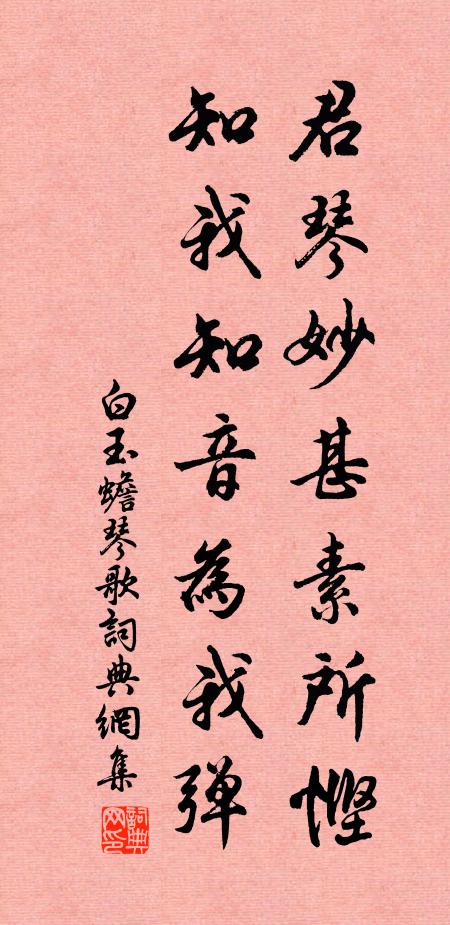 君琴妙甚素所慳
知我知音為我弹
白玉蟾琴歌詞典網集
詞典
网印